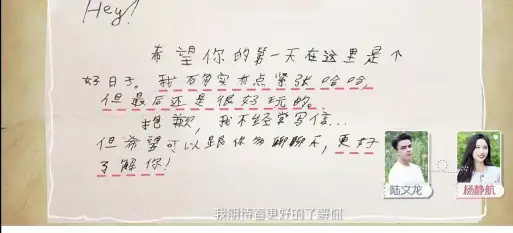 Hey!
希望你的第一天在这里是个
好日子。我有多实有点紧张哈哈,
但最后还是很好玩的。
抱歉,我不经常写信...
但希望可以跟你多聊聊天,更好
了解你!
陆文龙
杨静航
我期待着更好的了解你